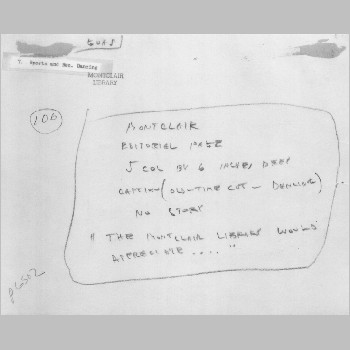 7. Sports and Rec. Dancing
MONTCLAIR
LIBRARY
100
MONTCLAIR
EDITORIAL PAGE
5 COL BY 6 INCHES DEEP
CAPTION (OLD-TIME CUT - DANCING)
NO STORY
" THE MONTCLAIR LIBRARY WOULD
APPRECIATE .... "